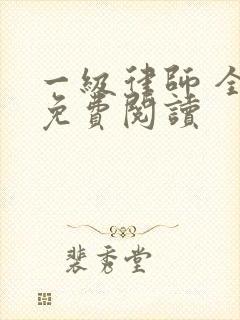 一級律師 全
免費閱讀
裴秀堂